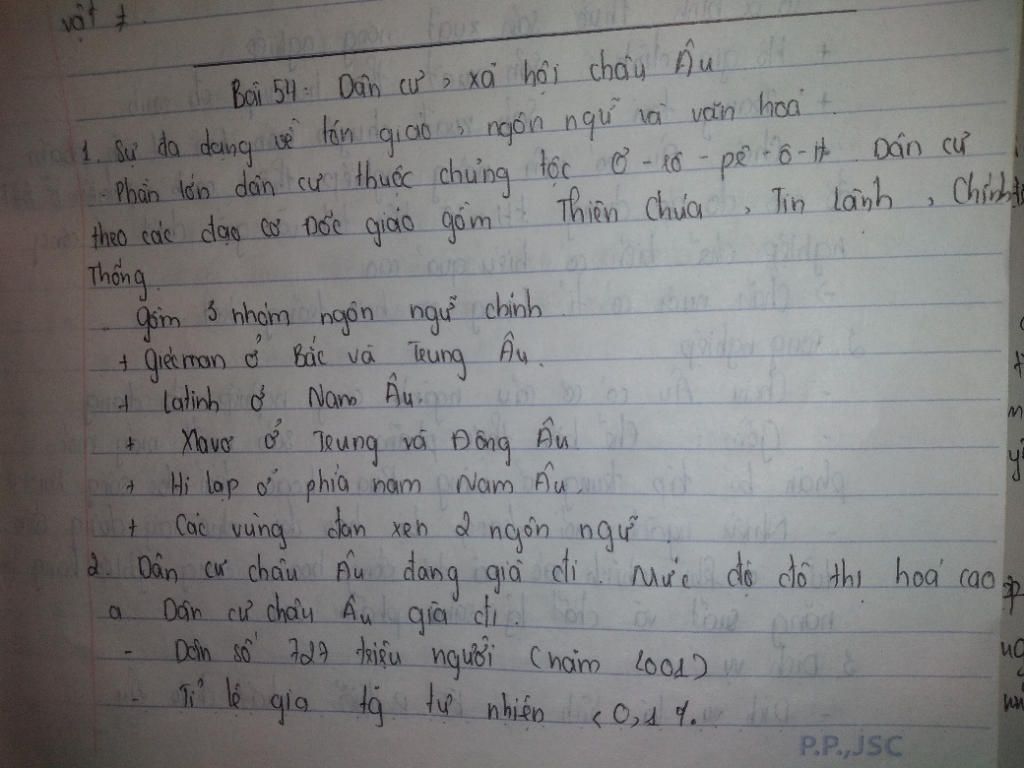 vật
Bài 54: Dân cư, xã hội châu Âu
1. Sự đa dạng về tôn giáo, ngôn ngữ và văn hoá
- Phần lớn dân cư thuộc chủng tộc Ơ-rô-pê-ô-it. Dân cư
theo các đạo cơ Đốc giáo gồm Thiên Chúa, Tin Lành, Chính
Thống.
- gồm 3 nhóm ngôn ngữ chính
+ Giécman ở Bắc và Trung Âu.
+ Latinh ở Nam Âu
+ Xlavơ ở Trung và Đông Âu
+ Hi Lạp ở phía nam Nam Âu.
+ Các vùng đan xen 2 ngôn ngữ
2. Dân cư châu Âu đang già đi. Mức độ đô thị hoá cao
a Dân cư châu Âu già đi.
- Dân số 727 triệu người (năm 2001)
- Tỉ lệ gia tg tự nhiên < 0,1 %.
P.P.,JSC